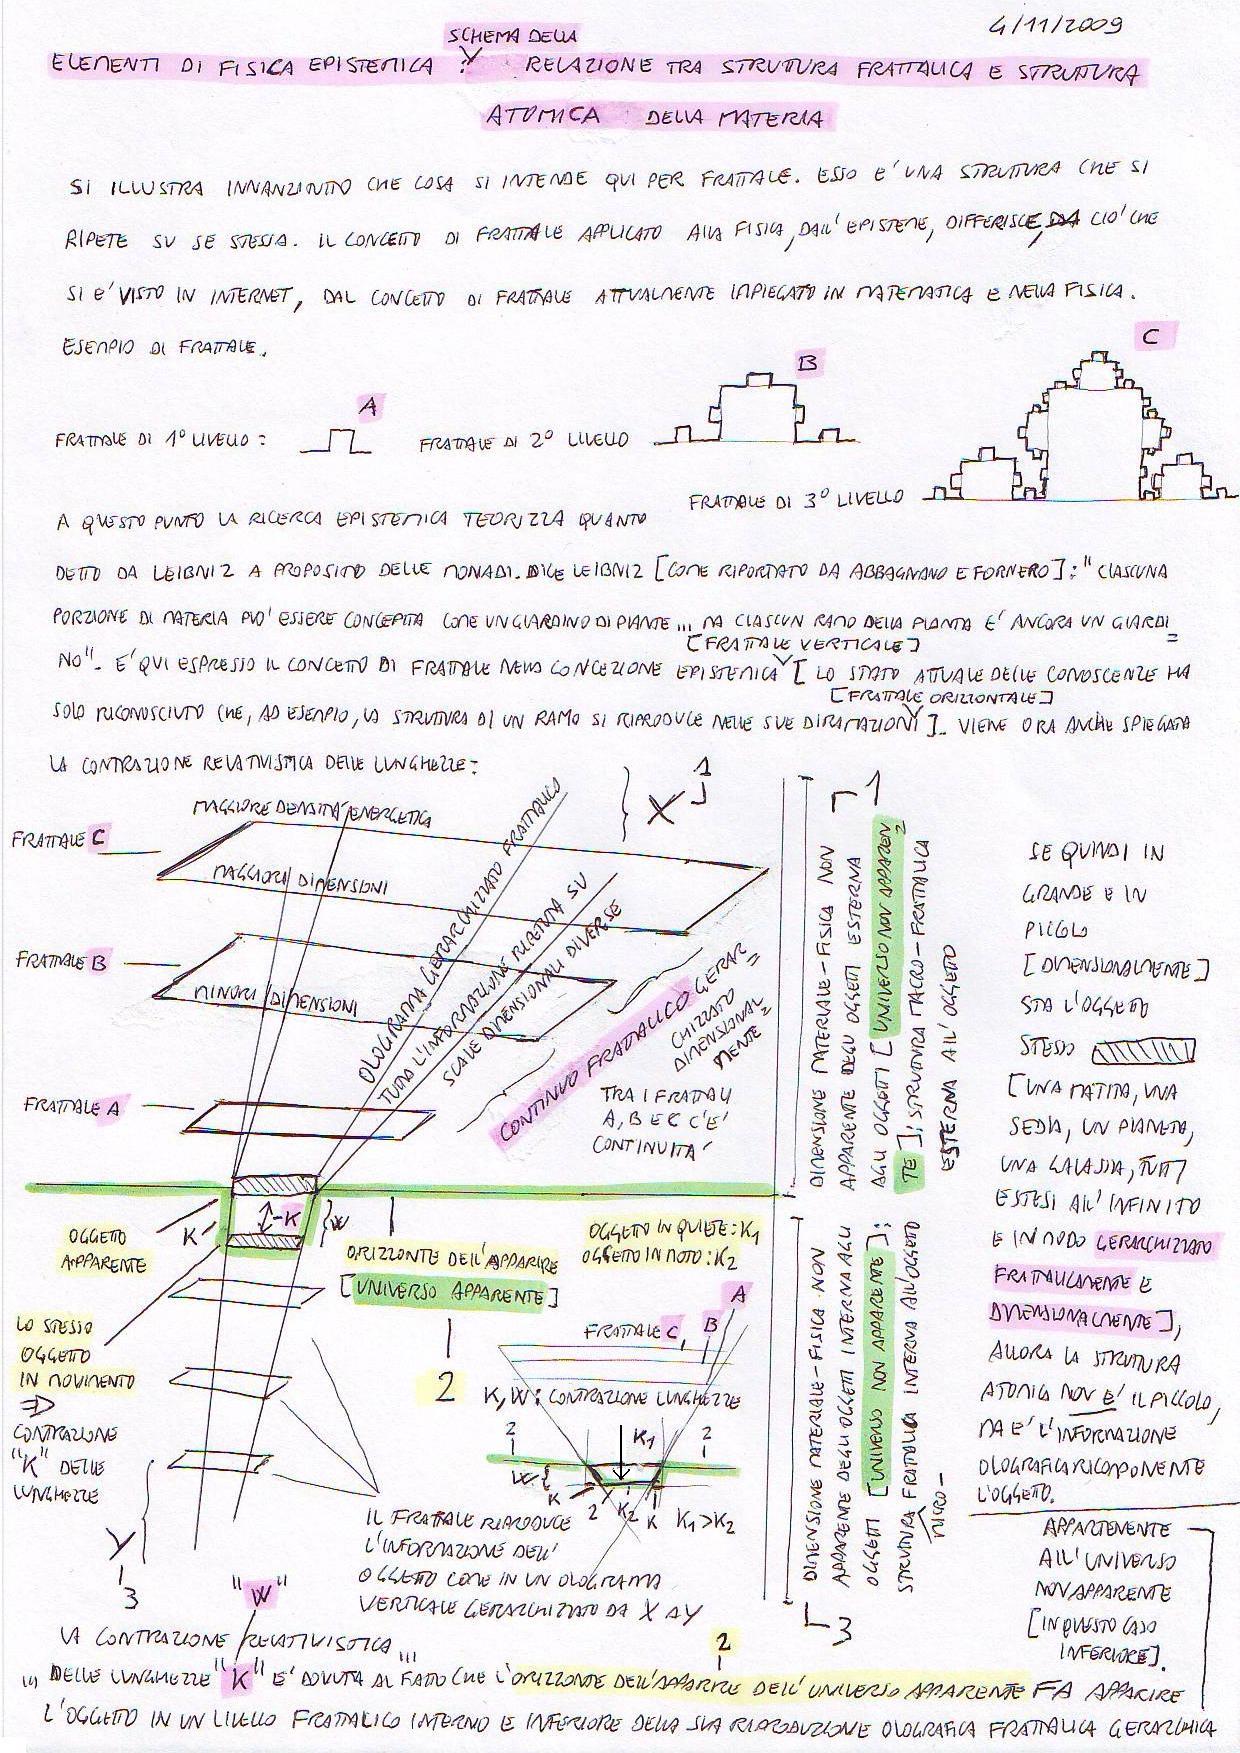 4/11/2009
SCHEMA DELLA
ELEMENTI DI FISICA EPISTEMICA : RELAZIONE TRA STRUTTURA FRATTALICA E STRUTTURA
ATOMICA DELLA MATERIA
SI ILLUSTRA INNANZITUTTO CHE COSA SI INTENDE QUI PER FRATTALE. ESSO E' UNA STRUTTURA CHE SI
RIPETE SU SE STESSA. IL CONCETTO DI FRATTALE APPLICATO ALLA FISICA, DALL'EPISTEME, DIFFERISCE, DA CIO' CHE
SI E' VISTO IN INTERNET, DAL CONCETTO DI FRATTALE ATTUALMENTE IMPIEGATO IN MATEMATICA E NELLA FISICA.
ESEMPIO DI FRATTALE.
A
B
C
FRATTALE DI 1° LIVELLO :
FRATTALE DI 2° LIVELLO
FRATTALE DI 3° LIVELLO
A QUESTO PUNTO LA RICERCA EPISTEMICA TEORIZZA QUANTO
DETTO DA LEIBNIZ A PROPOSITO DELLE MONADI. DICE LEIBNIZ [COME RIPORTATO DA ABBAGNANO E FORNERO]: "CIASCUNA
PORZIONE DI MATERIA PUO' ESSERE CONCEPITA COME UN GIARDINO DI PIANTE... MA CIASCUN RAMO DELLA PIANTA E' ANCORA UN GIARDI=
[FRATTALE VERTICALE]
NO". E' QUI ESPRESSO IL CONCETTO DI FRATTALE NELLA CONCEZIONE EPISTEMICA [LO STATO ATTUALE DELLE CONOSCENZE HA
[FRATTALE ORIZZONTALE]
SOLO RICONOSCIUTO CHE, AD ESEMPIO, LA STRUTTURA DI UN RAMO SI RIPRODUCE NELLE SUE DIRAMAZIONI]. VIENE ORA ANCHE SPIEGATA
LA CONTRAZIONE RELATIVISTICA DELLE LUNGHEZZE:
MAGGIORE DENSITA' ENERGETICA
FRATTALE C
MAGGIORI DIMENSIONI
FRATTALE B
MINORI DIMENSIONI
FRATTALE A
OLOGRAMMA GERARCHIZZATO FRATTALICO
TUTTA L'INFORMAZIONE RIPETUTA SU
SCALE DIMENSIONALI DIVERSE
X
1
CONTINUO FRATTALICO GERAR=
CHIZZATO
DIMENSIONAL=
MENTE
TRA I FRATTALI
A, B E C C'E'
CONTINUITA'
1
DIMENSIONE MATERIALE-FISICA NON
APPARENTE DEGLI OGGETTI ESTERNA
AGLI OGGETTI [UNIVERSO NON APPAREN=
TE]; STRUTTURA MACRO-FRATTALICA
ESTERNA ALL'OGGETTO
SE QUINDI IN
GRANDE E IN
PICCOLO
[DIMENSIONALMENTE]
STA L'OGGETTO
STESSO
[UNA MATITA, UNA
SEDIA, UN PIANETA,
UNA GALASSIA, TUTTI
ESTESI ALL'INFINITO
E IN MODO GERARCHIZZATO
FRATTALICAMENTE E
DIMENSIONALMENTE],
ALLORA LA STRUTTURA
ATOMICA NON E' IL PICCOLO,
MA E' L'INFORMAZIONE
OLOGRAFICA RICOMPONENTE
L'OGGETTO.
APPARTENENTE
ALL'UNIVERSO
NON APPARENTE
[IN QUESTO CASO
INFERIORE].
OGGETTO
APPARENTE
K
K
W
ORIZZONTE DELL'APPARIRE
[UNIVERSO APPARENTE]
2
OGGETTO IN QUIETE: K1
OGGETTO IN MOTO: K2
LO STESSO
OGGETTO
IN MOVIMENTO
⇒
CONTRAZIONE
"K" DELLE
LUNGHEZZE
Y
3
A
FRATTALE C, B
K, W: CONTRAZIONE LUNGHEZZE
2
K1
2
W
K
2
K2
K
K1>K2
IL FRATTALE RIPRODUCE
L'INFORMAZIONE DELL'
OGGETTO COME IN UN OLOGRAMMA
VERTICALE GERARCHIZZATO DA X A Y
DIMENSIONE MATERIALE-FISICA NON
APPARENTE DEGLI OGGETTI INTERNA AGLI
OGGETTI [UNIVERSO NON APPARENTE];
STRUTTURA FRATTALICA INTERNA ALL'OGGETTO
MICRO-
3
"W"
LA CONTRAZIONE RELATIVISTICA...
2
... DELLE LUNGHEZZE "K" E' DOVUTA AL FATTO CHE L'ORIZZONTE DELL'APPARIRE DELL'UNIVERSO APPARENTE FA APPARIRE
L'OGGETTO IN UN LIVELLO FRATTALICO INTERNO E INFERIORE DELLA SUA RIPRODUZIONE OLOGRAFICA FRATTALICA GERARCHICA